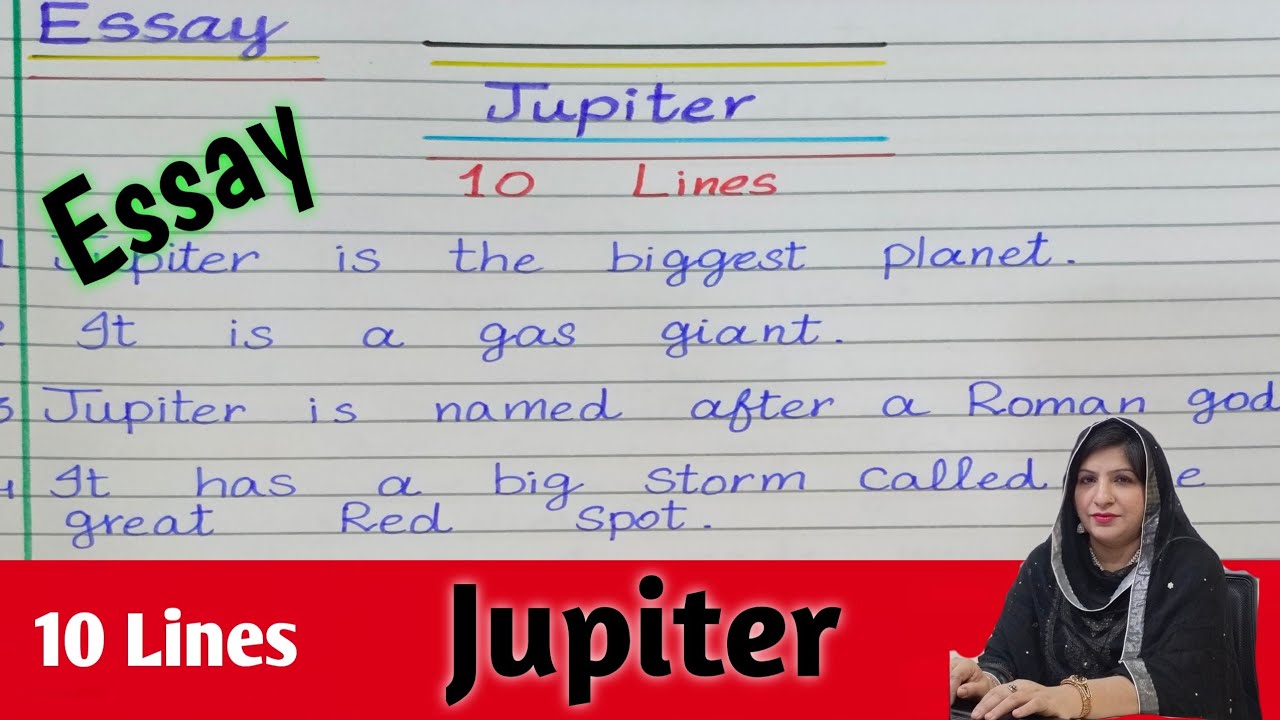 Essay
Jupiter
10 Lines
Essay
1 Jupiter is the biggest planet.
2 It is a gas giant.
3 Jupiter is named after a Roman god
4 It has a big storm called e
great Red spot.
10 Lines
Jupiter